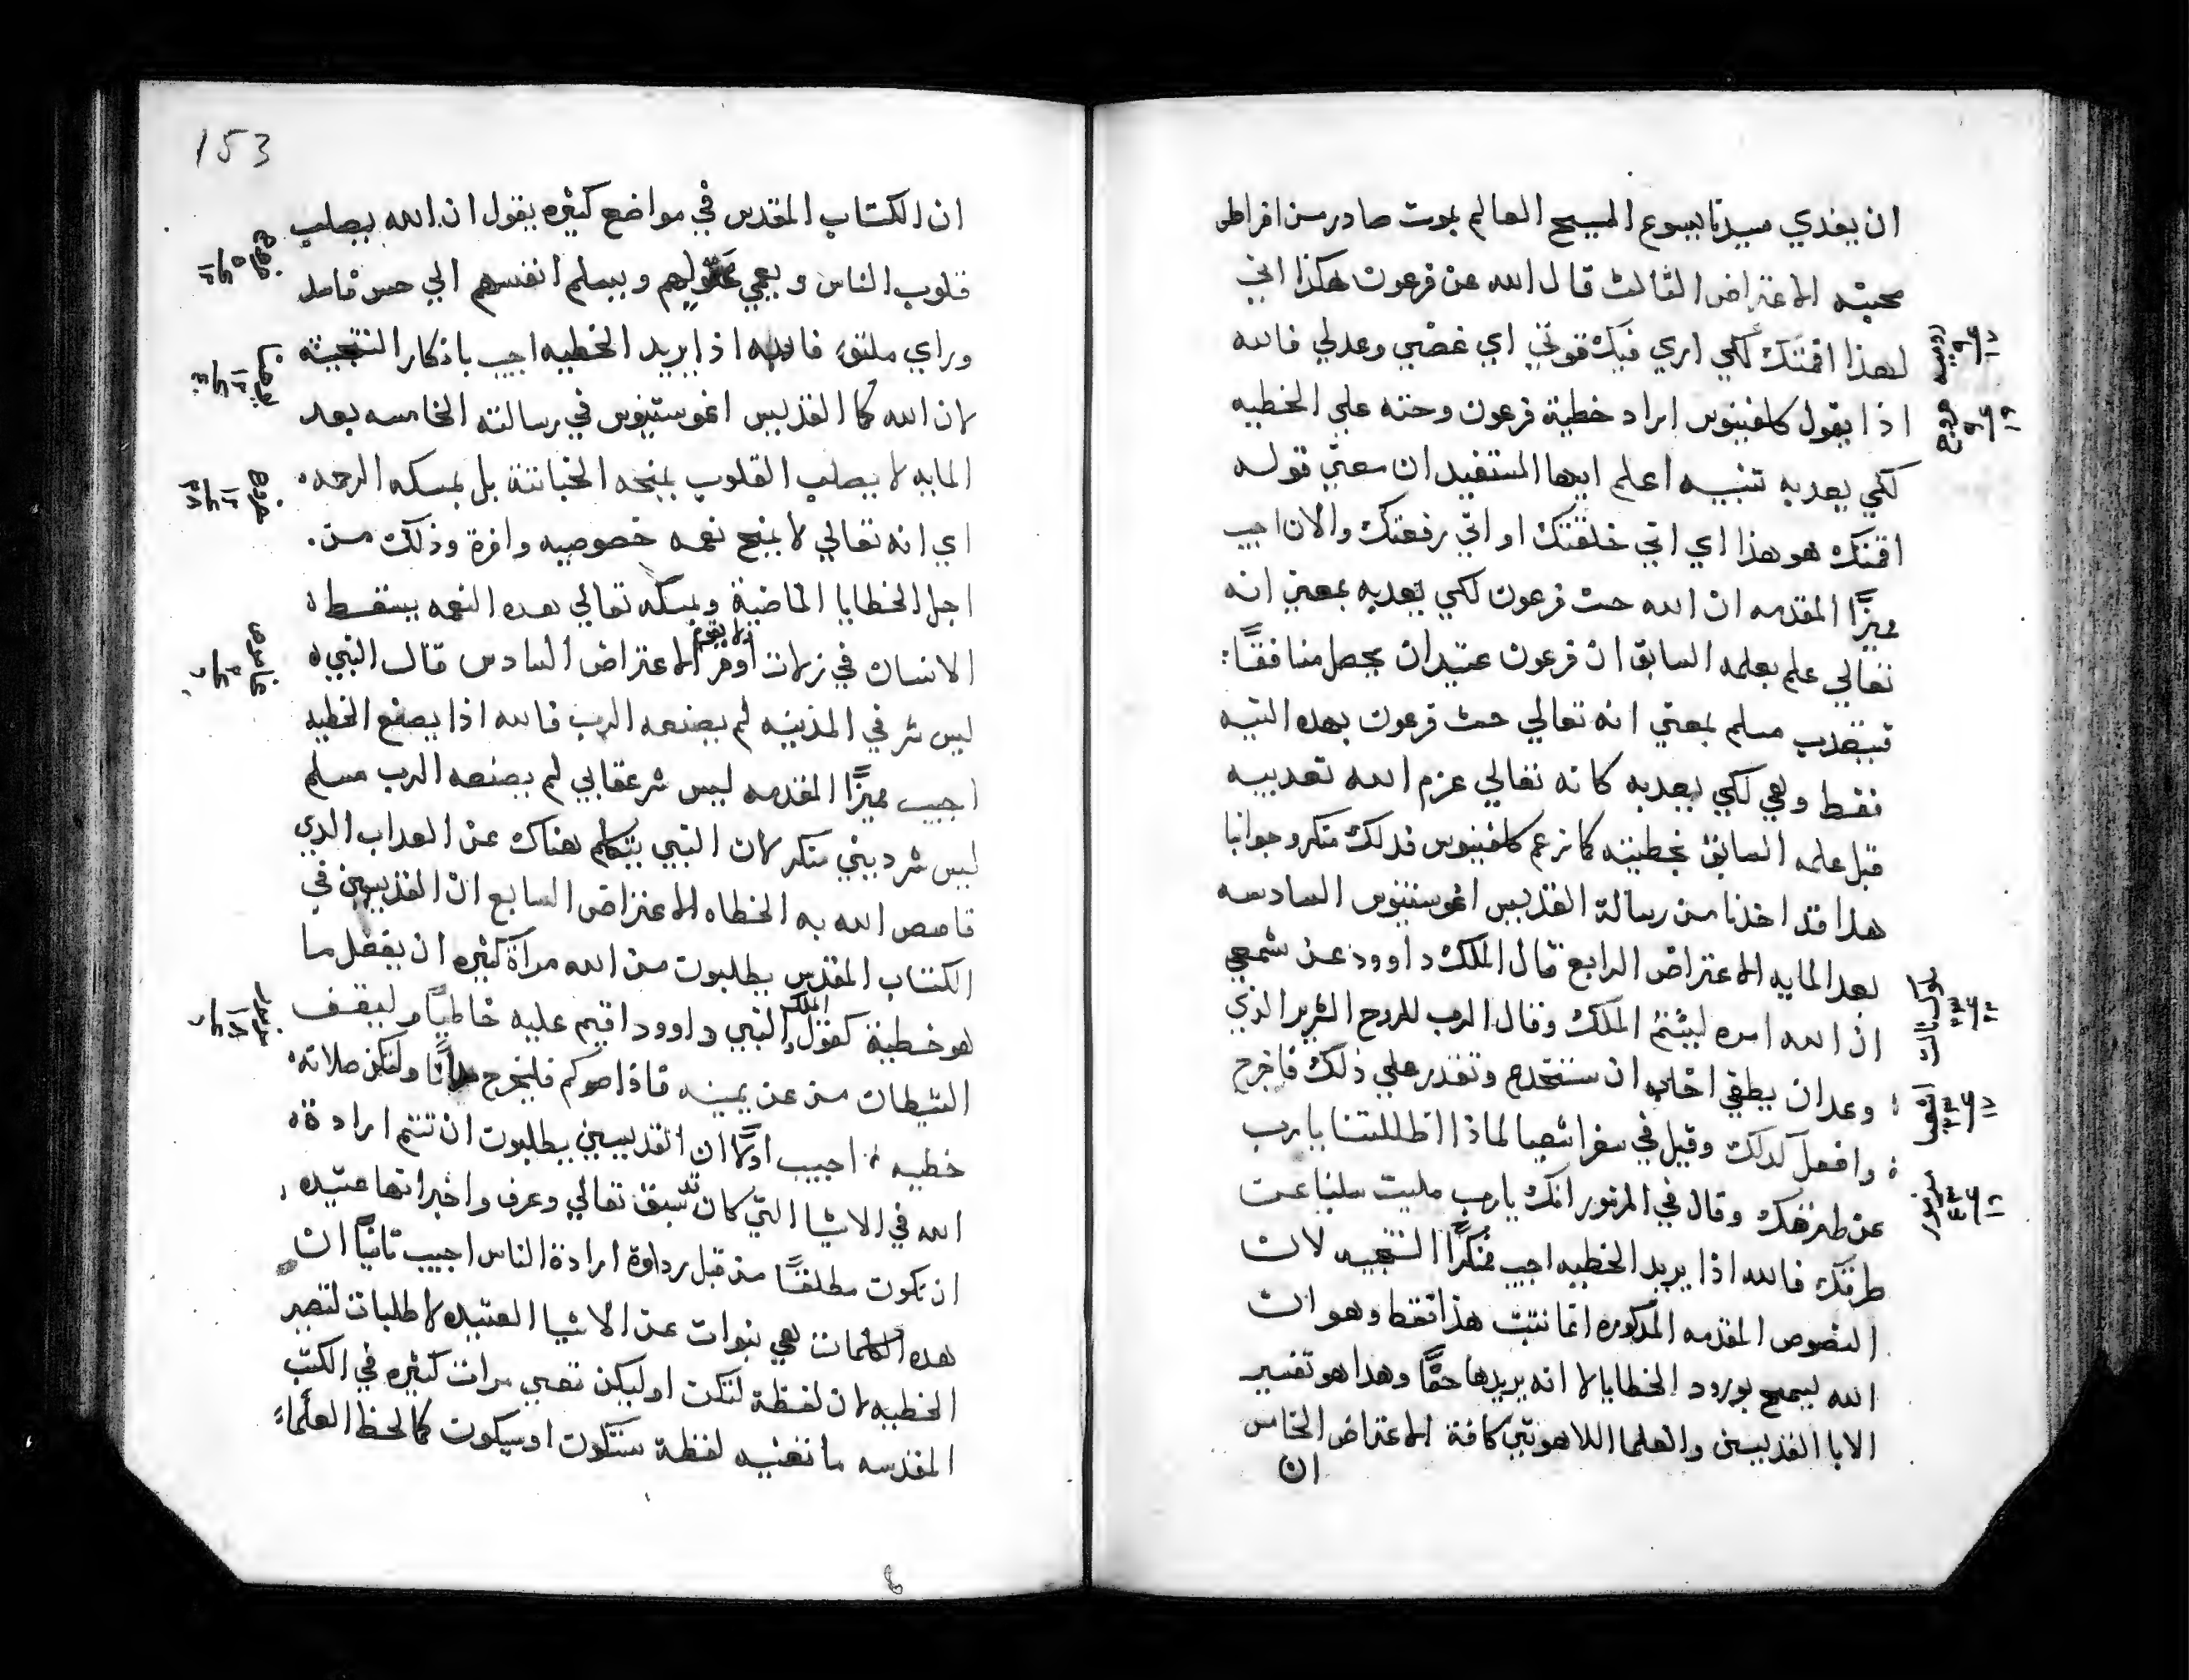 ان يفدي سيدنا يسوع المسيح العالم بموت صادر من افراط
محبته الاعتراض الثالث قال الله عن فرعون هكذا اني
لهذا اقمتك لكي اري فيك قوتي اي غضبي وعدلي فالله
اذا يقول كلفينوس اراد خطية فرعون وحته علي الخطيه
لكي يعدبه تنبيه اعلم ايها المستفيد ان معني قوله
اقمتك هو هذا اي اني خلقتك او اني رفعتك والان اجيب
مميزًا المقدمه ان الله حث فرعون لكي يعدبه بمعني انه
تعالي علم بعلمه السابق ان فرعون عتيد ان يحصل منافقًا:
فيتعدب مسلم بمعني انه تعالي حث فرعون بهده النيه
فقط وهي لكي يعدبه كانه تعالي عزم الله تعديبه
قبل علمه السابق بخطيته كما زعم كلفينوس فدلك منكر وجوابنا
هدا قد اخدنا من رسالة القديس اغوستينوس السادسه
بعد المايه الاعتراض الرابع قال الملك داوود عن شمعي
ان الله امره ليشتم الملك وقال الرب للروح الشرير الذي
وعد ان يطغي اخاب ان ستخدع وتقدر علي ذلك فاخرج
وافعل كدلك وقيل في سفر اشعيا لماذا اظللتنا يا رب
عن طرقك وقال في المزمور انك يا رب مليت سلبنا عن
طرقك فالله اذا يريد الخطيه اجيب منكرًا النتيجه لان
النصوص المقدمه المدكوره انما نتبت هذا فقط وهو ان
الله يسمح بورود الخطايا لا انه يريدها حقًا وهدا هو تفسير
الابا القديسين والعلما اللاهوتيين كافة الاعتراض الخامس
ان
رومیه
٩
١٧
خروج
٩
١٦
ملوك ثالث
٢٢
٢٢
اشعيا
٦٣
١٧
مزمور
٤٣
١٩
153
ان الكتاب المقدس في مواضع كثيره يقول ان الله يصلب
قلوب الناس ويعمي عقولهم ويسلم انفسهم الي حس فاسد
وراي ملتوٍ فالله اذا يريد الخطيه اجيب بانكار النتيجة
لان الله كما القديس اغوستينوس في رسالته الخامسه بعد
المايه لا يصلب القلوب بمنحه الخباثتة بل بمسكه الرحمه
اي انه تعالي لا يمنح نعمه خصوصيه وافرة وذلك من
اجل الخطايا الماضية وبمسكه تعالي هده النعمه يسقط
الانسان في زلات اوفر الاعتراض السادس قال النبي
ليس شر في المدينه لم يصنعه الرب فالله اذا يصنع الخطيه
اجيب مميزًا المقدمه ليس شر عقابي لم يصنعه الرب مسلم
ليس شر ديني منكر لان النبي يتكلم هناك عن العداب الدي
قاصص الله به الخطاه الاعتراض السابع ان القديسين في
الكتاب المقدس يطلبون من الله مرآة كثيره ان يفعل ما
هو خطية كقول الملك والنبي داوود اقيم عليه خاطيًا وليقف
الشيطان من عن يمينه فاذا حوكم فليخرج مدانًا ولتكن صلاته
خطيه اجيب اولًا ان القديسين يطلبون ان تتم ارادة
الله في الاشيا التي كان قد سبق تعالي وعرف واخبر انها عتيده
ان تكون مطلقًا من قبل رداوة ارادة الناس اجيب ثانيًا ان
هده الكلمات هي بنوات عن الاشيا العتيده لا طلبات لتصير
الخطيه لان لفظة لتكن او ليكن تعني مرات كثيره في الكتب
المقدسه ما تعنيه لفظة ستكون او سيكون كما لحظ العلماء
خروج
يوحنا
١٢
٤٠
خروج
عاموص
٣
٦
مزمور
١٠٨
٦